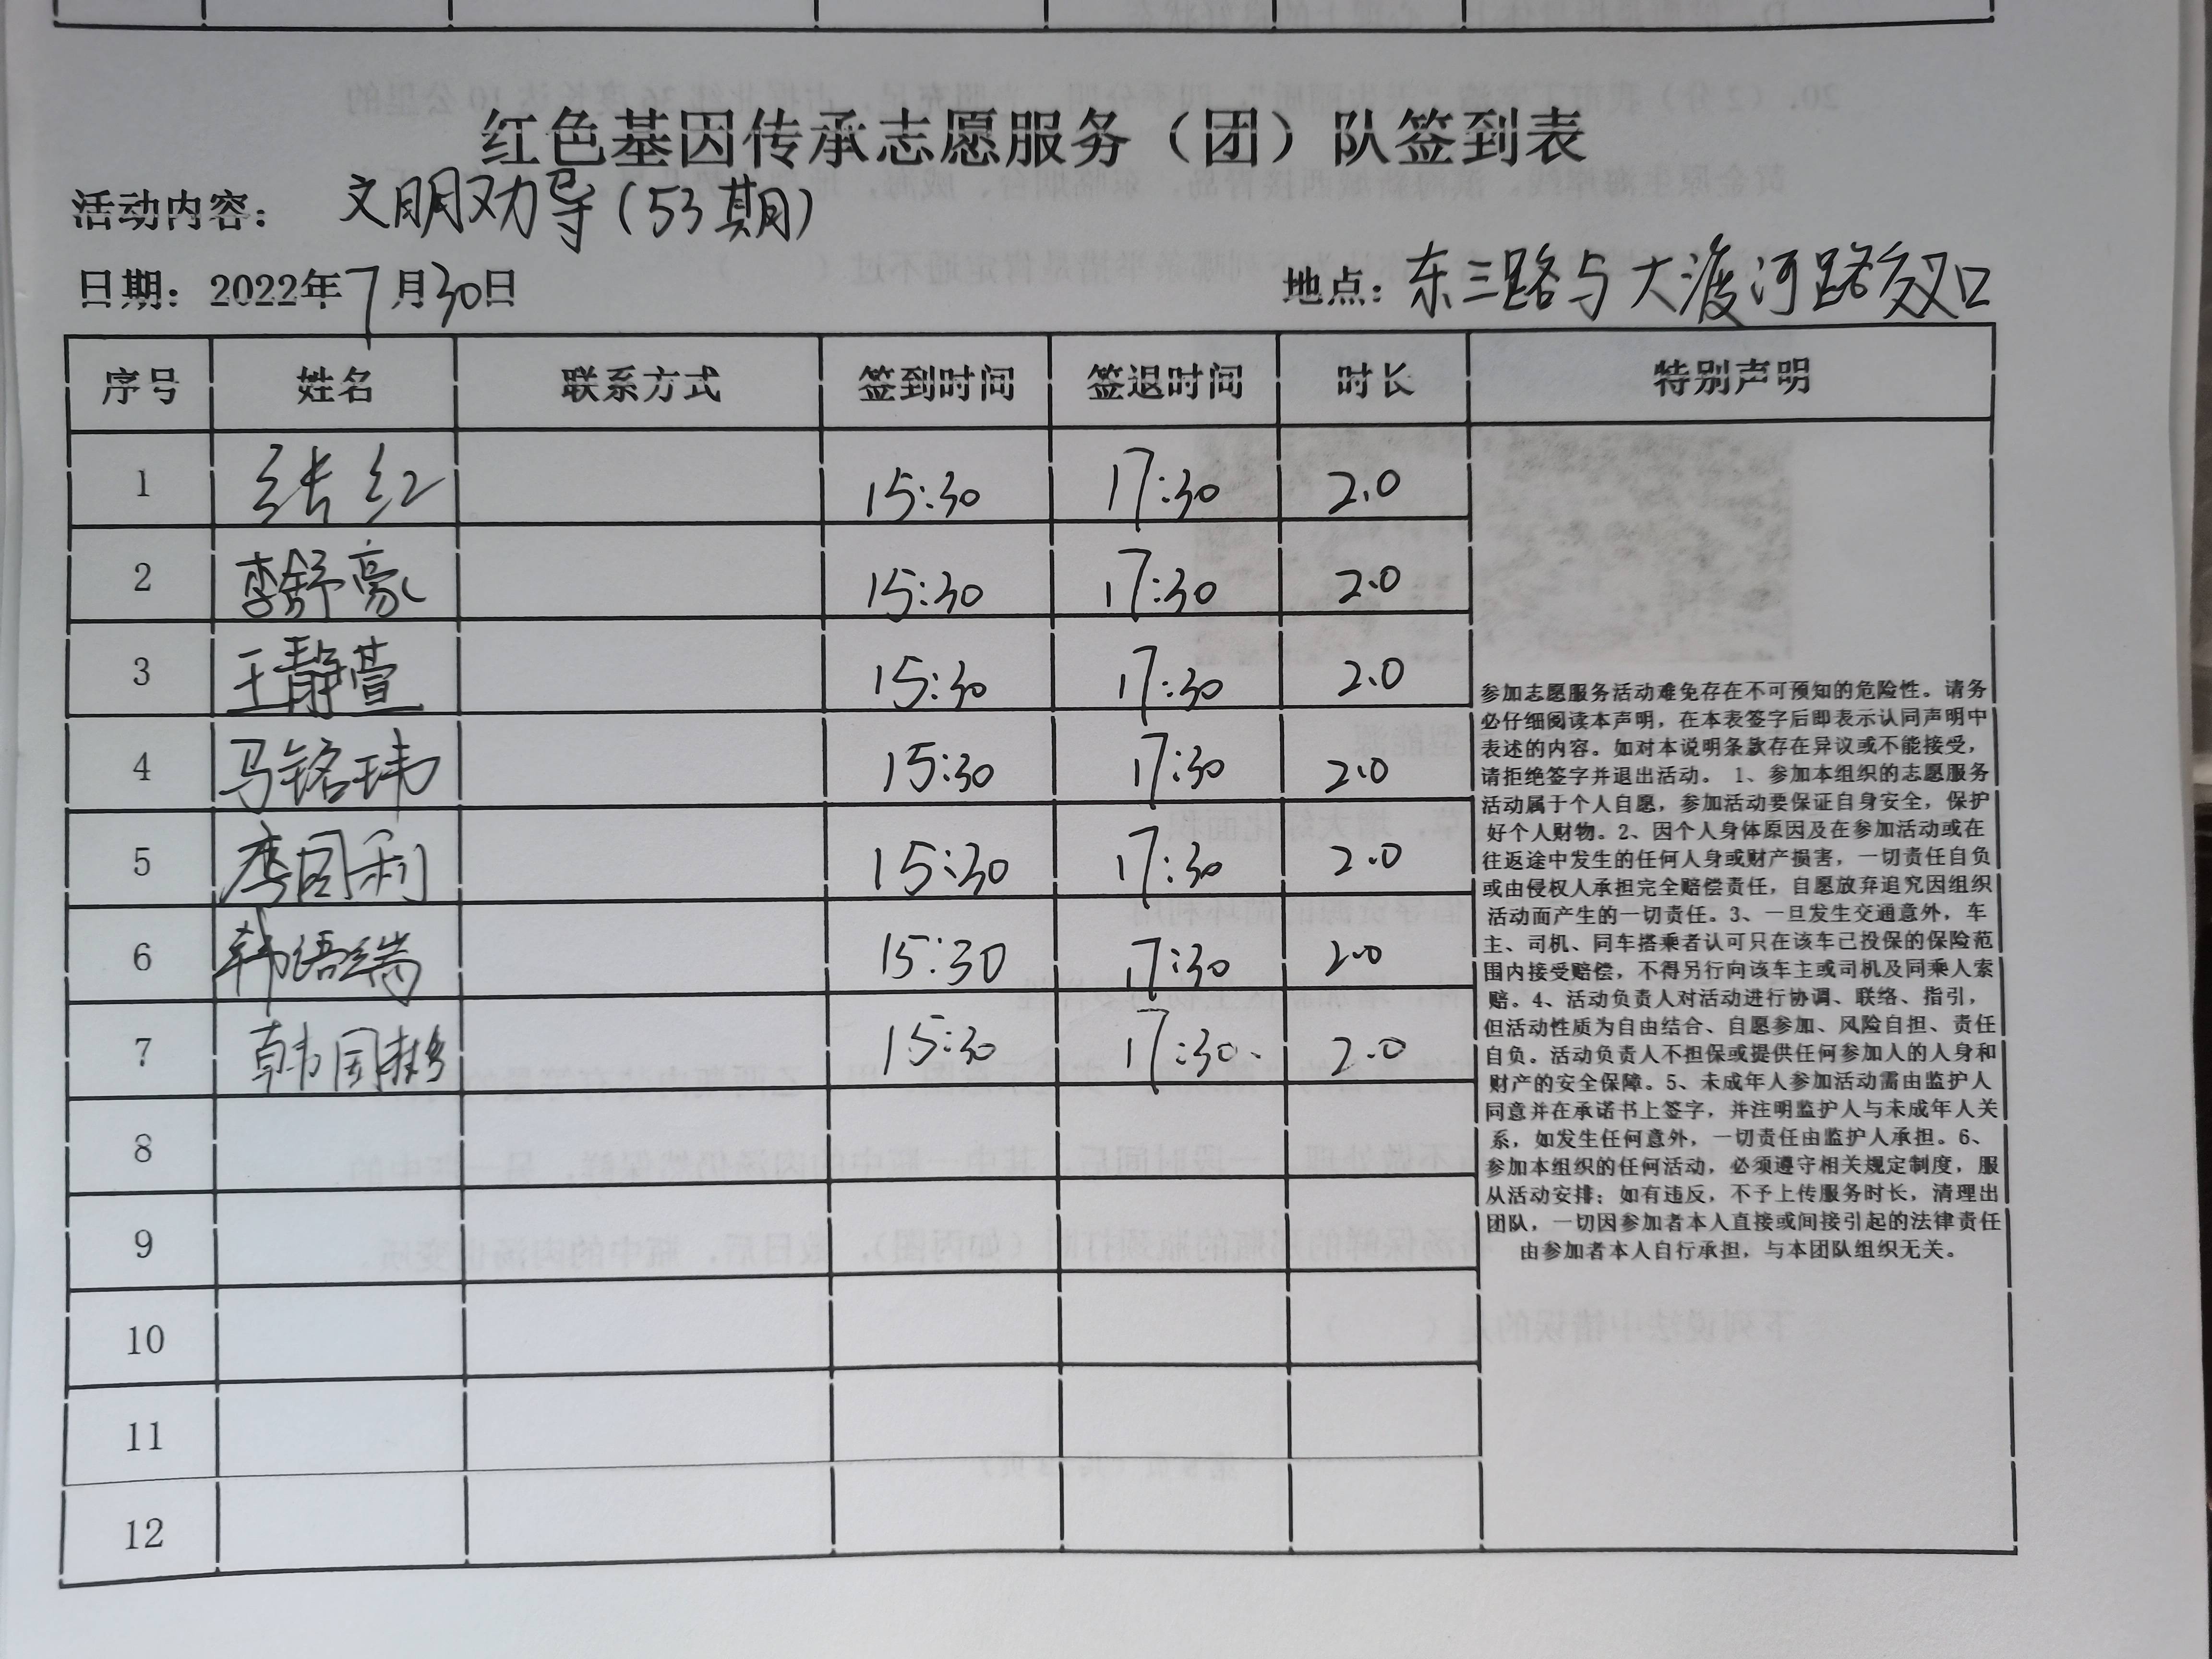 红色基因传承志愿服务（团）队签到表
活动内容： 文明劝导（53期）
日期：2022年7月30日 地点：东三路与大渡河路交叉口
序号 姓名 联系方式 签到时间 签退时间 时长 特别声明
1 张红 15:30 17:30 2.0
2 李舒豪 15:30 17:30 2.0
3 王静萱 15:30 17:30 2.0
4 马铭玮 15:30 17:30 2.0
5 李同利 15:30 17:30 2.0
6 韩语端 15:30 17:30 2.0
7 韩国彬 15:30 17:30 2.0
8
9
10
11
12
参加志愿服务活动难免存在不可预知的危险性。请务
必仔细阅读本声明，在本表签字后即表示认同声明中
表述的内容。如对本说明条款存在异议或不能接受，
请拒绝签字并退出活动。 1、参加本组织的志愿服务
活动属于个人自愿，参加活动要保证自身安全，保护
好个人财物。2、因个人身体原因及在参加活动或在
往返途中发生的任何人身或财产损害，一切责任自负
或由侵权人承担完全赔偿责任，自愿放弃追究因组织
活动而产生的一切责任。3、一旦发生交通意外，车
主、司机、同车搭乘者认可只在该车已投保的保险范
围内接受赔偿，不得另行向该车主或司机及同乘人索
赔。4、活动负责人对活动进行协调、联络、指引，
但活动性质为自由结合、自愿参加、风险自担、责任
自负。活动负责人不担保或提供任何参加人的人身和
财产的安全保障。5、未成年人参加活动需由监护人
同意并在承诺书上签字，并注明监护人与未成年人关
系，如发生任何意外，一切责任由监护人承担。6、
参加本组织的任何活动，必须遵守相关规定制度，服
从活动安排；如有违反，不予上传服务时长，清理出
团队，一切因参加者本人直接或间接引起的法律责任
由参加者本人自行承担，与本团队组织无关。